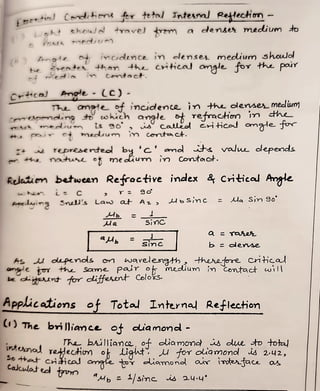 Essential Conditions for total Internal Reflection -
(i) Light should travel from a denser medium to
a rarer medium
(ii) Angle of incidence in denser medium should
be greater than the critical angle for the pair
of media in contact.
Critical Angle - (C) -
The angle of incidence in the denser medium,
corresponding to which angle of refraction in the
rarer medium is 90°, is called critical angle for
the pair of medium in contact.
It is represented by 'C' and its value depends
on the nature of medium in contact.
Relation between Refractive index & Critical Angle
when i = C , r = 90°
Applying Snell's Law at A₂, μb sin c = μa Sin 90°
μb/μa = 1/sinc
ᵃμb = 1/sinc a = rarer
b = dense
As μ depends on wavelength, therefore critical
angle for the same pair of medium in contact will
be different for different Colors.
Applications of Total Internal Reflection
(1) The brilliance of diamond -
The brilliance of diamond is due to total
internal reflection of light. μ for diamond is 2.42,
so that critical angle for diamond air interface as
calculated from
ᵃμb = 1/sinc is 24.4°